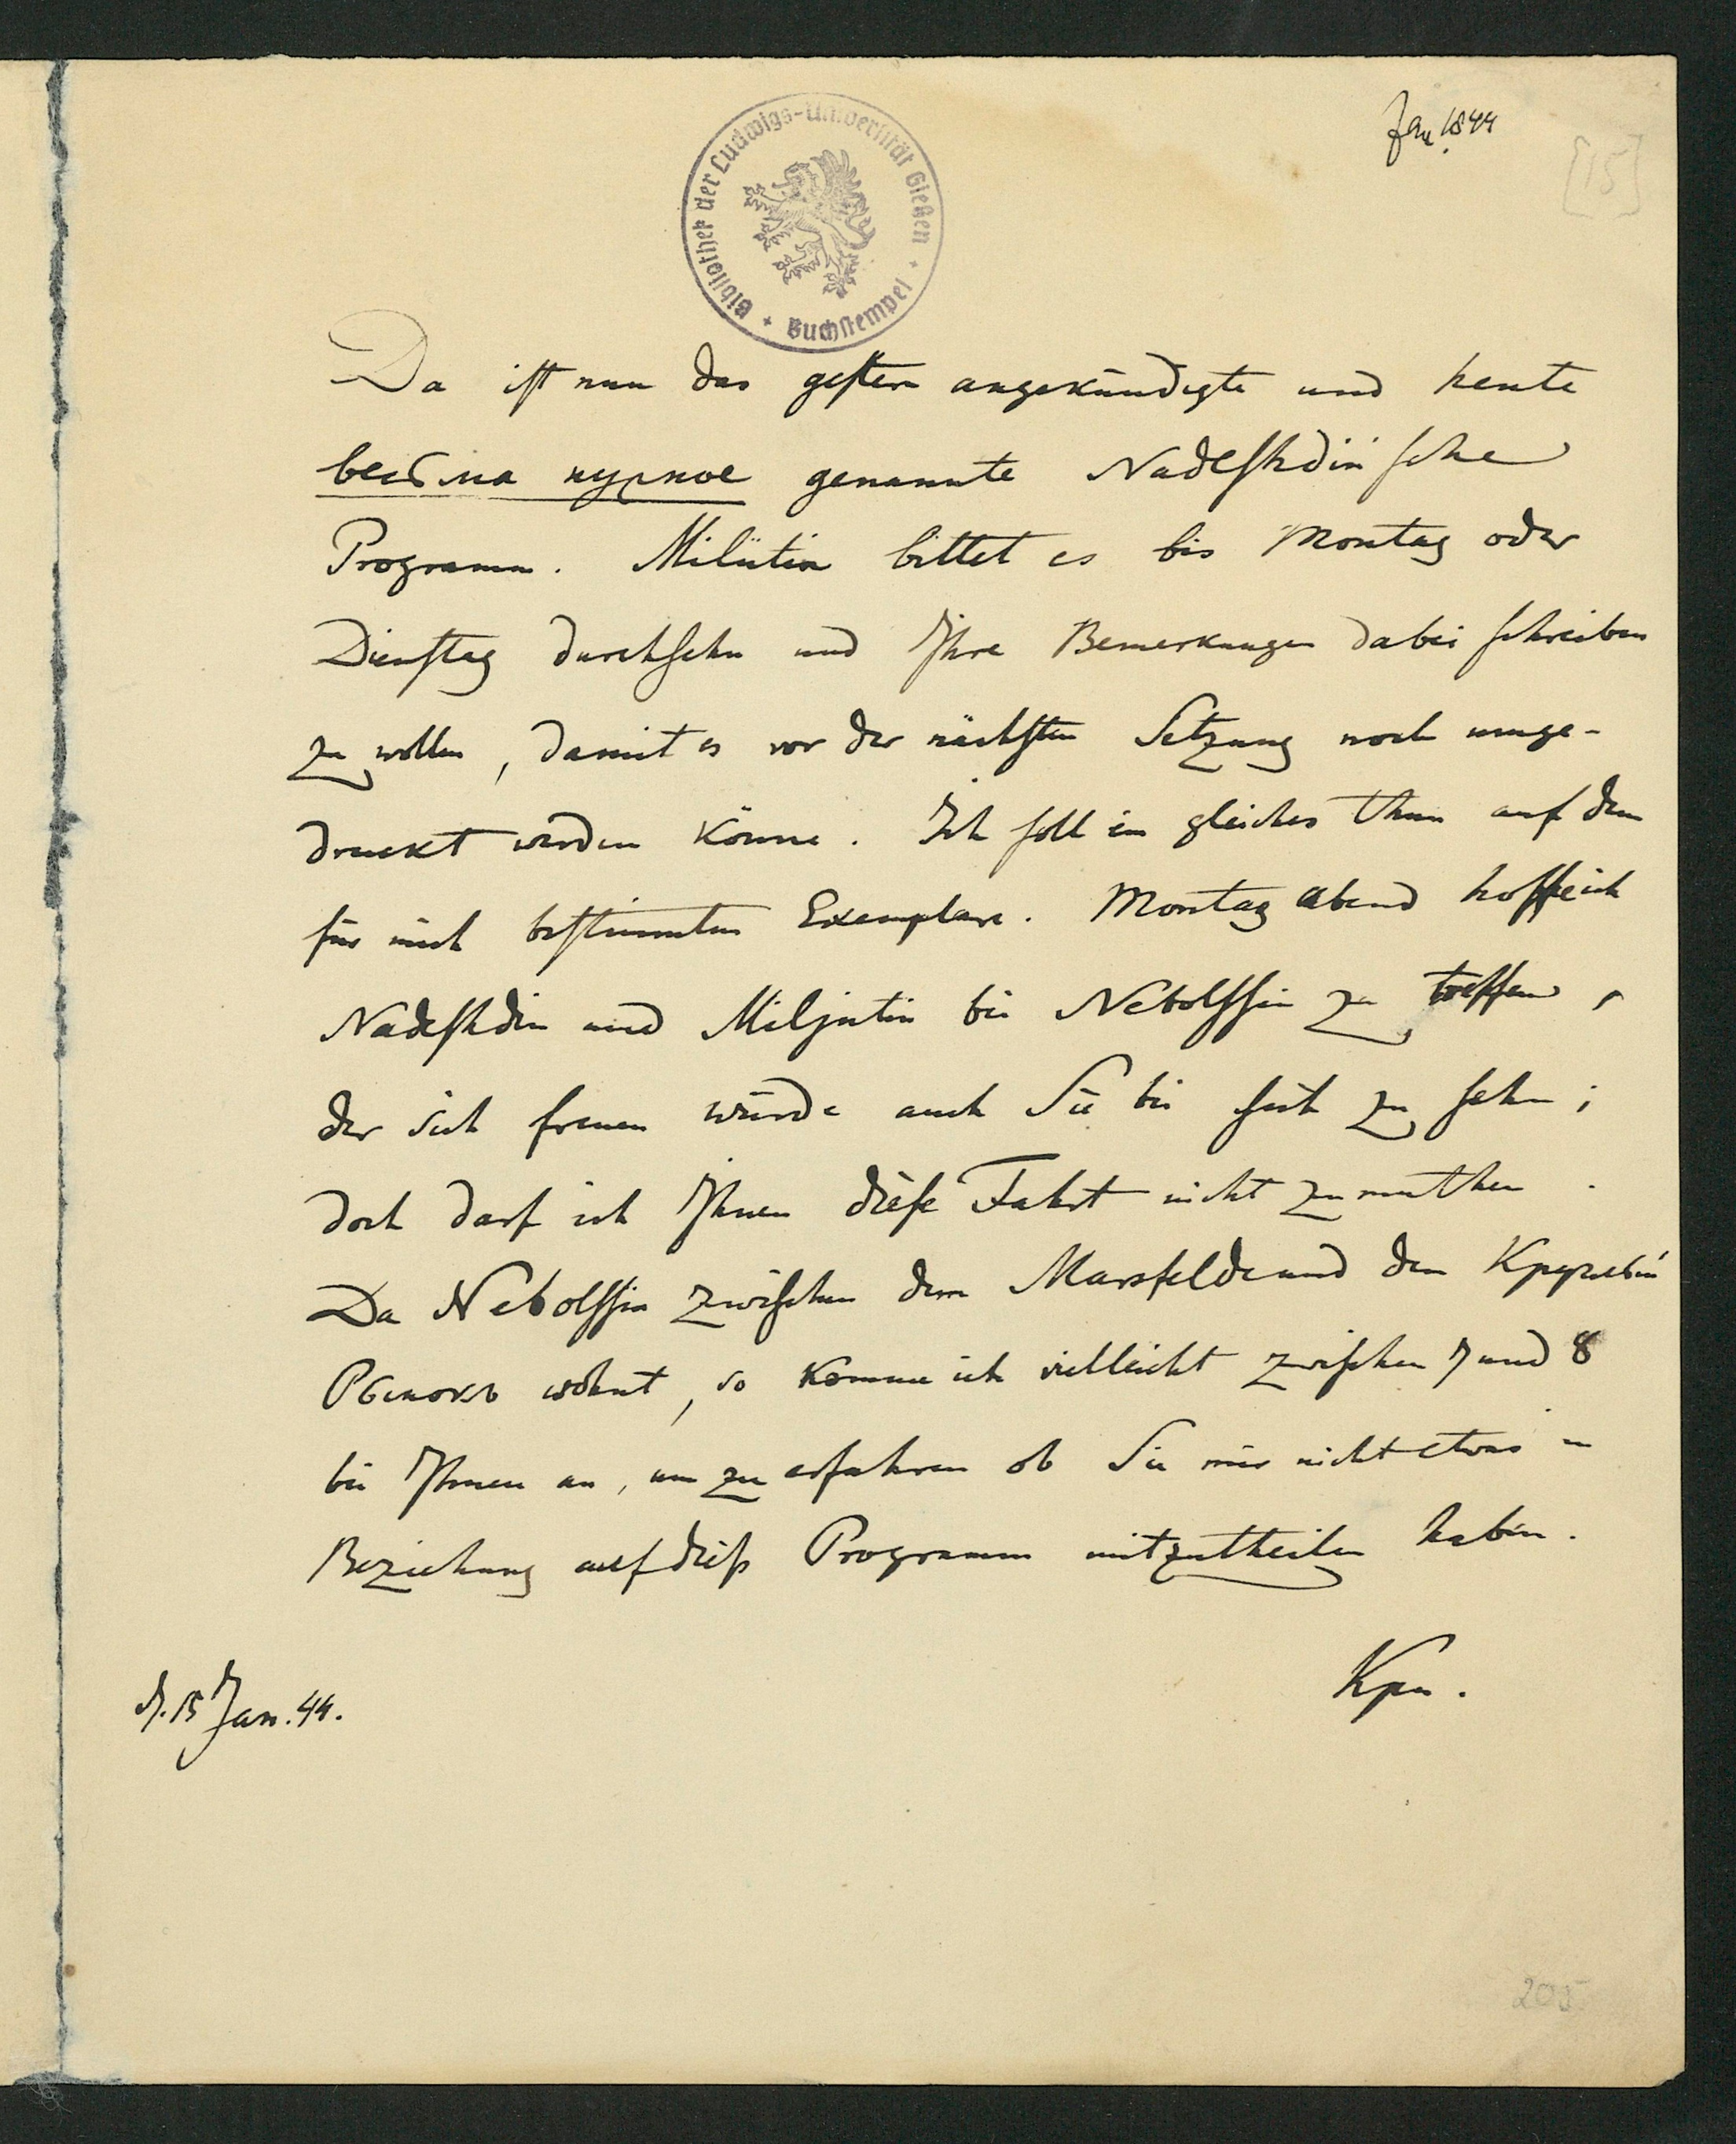 Jan 1844
[15]
Bibliothek der Ludwigs-Universität Gießen + Buchstempel +
Da ist nun das gestern angekündigte und heute
genannte Nadeshdinsche
Programm. Milütin bittet es bis Montag oder
Dienstag durchsehn und Ihre Bemerkungen dabei schreiben
zu wollen, damit es vor der nächsten Setzung noch umge-
druckt werden könne. Ich soll ein gleiches thun auf dem
für mich bestimmten Exemplare. Montag abend hoffe ich
Nadeshdin und Miljutin bei Nebolssin zu treffen,
der sich freuen würde auch Sie bei sich zu sehn;
doch darf ich Ihnen diese Fahrt nicht zumuthen.
Da Nebolssin zwischen dem Marsfelde und dem Круглый
Рынокъ wohnt, so komme ich vielleicht zwischen 7 und 8
bei Ihnen an, um zu erfahren ob Sie mir nicht etwas in
Beziehung auf dieß Programm mitzutheilen haben.
Kpn.
d. 15 Jan. 44.
205